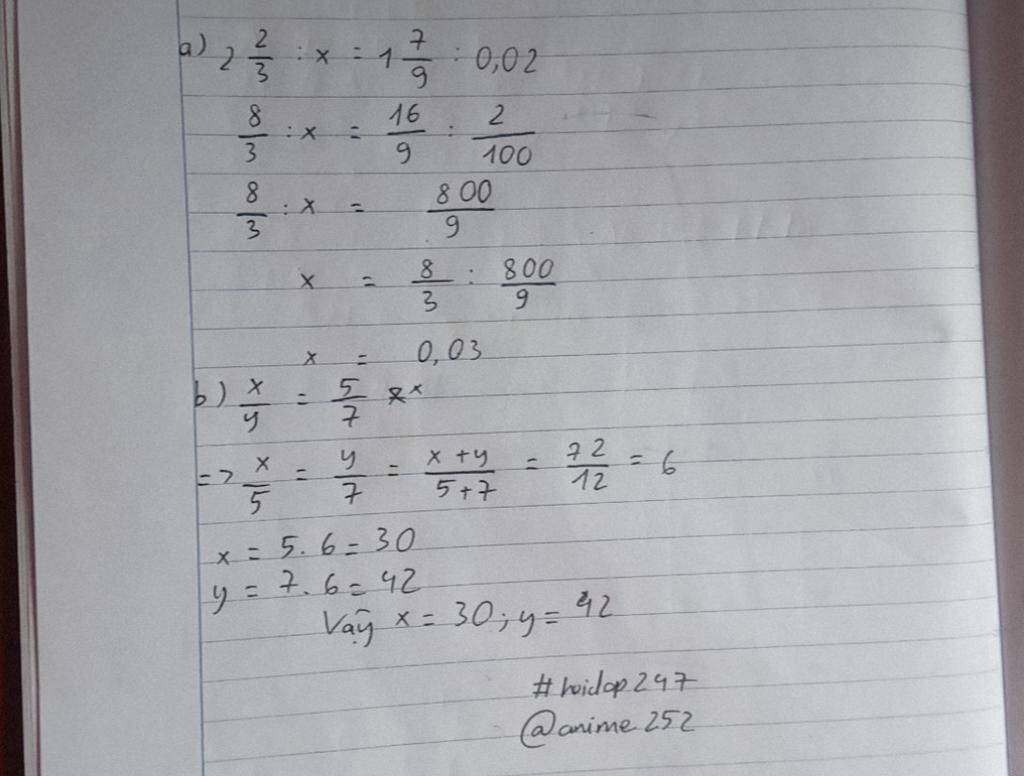 a) 2 2/3 : x = 1 7/9 : 0,02
8/3 : x = 16/9 : 2/100
8/3 : x = 800/9
x = 8/3 : 800/9
x = 0,03
b) x/y = 5/7
=> x/5 = y/7 = x+y/5+7 = 72/12 = 6
x = 5.6 = 30
y = 7.6 = 42
Vậy x = 30; y = 42
#hoidap247
@anime252